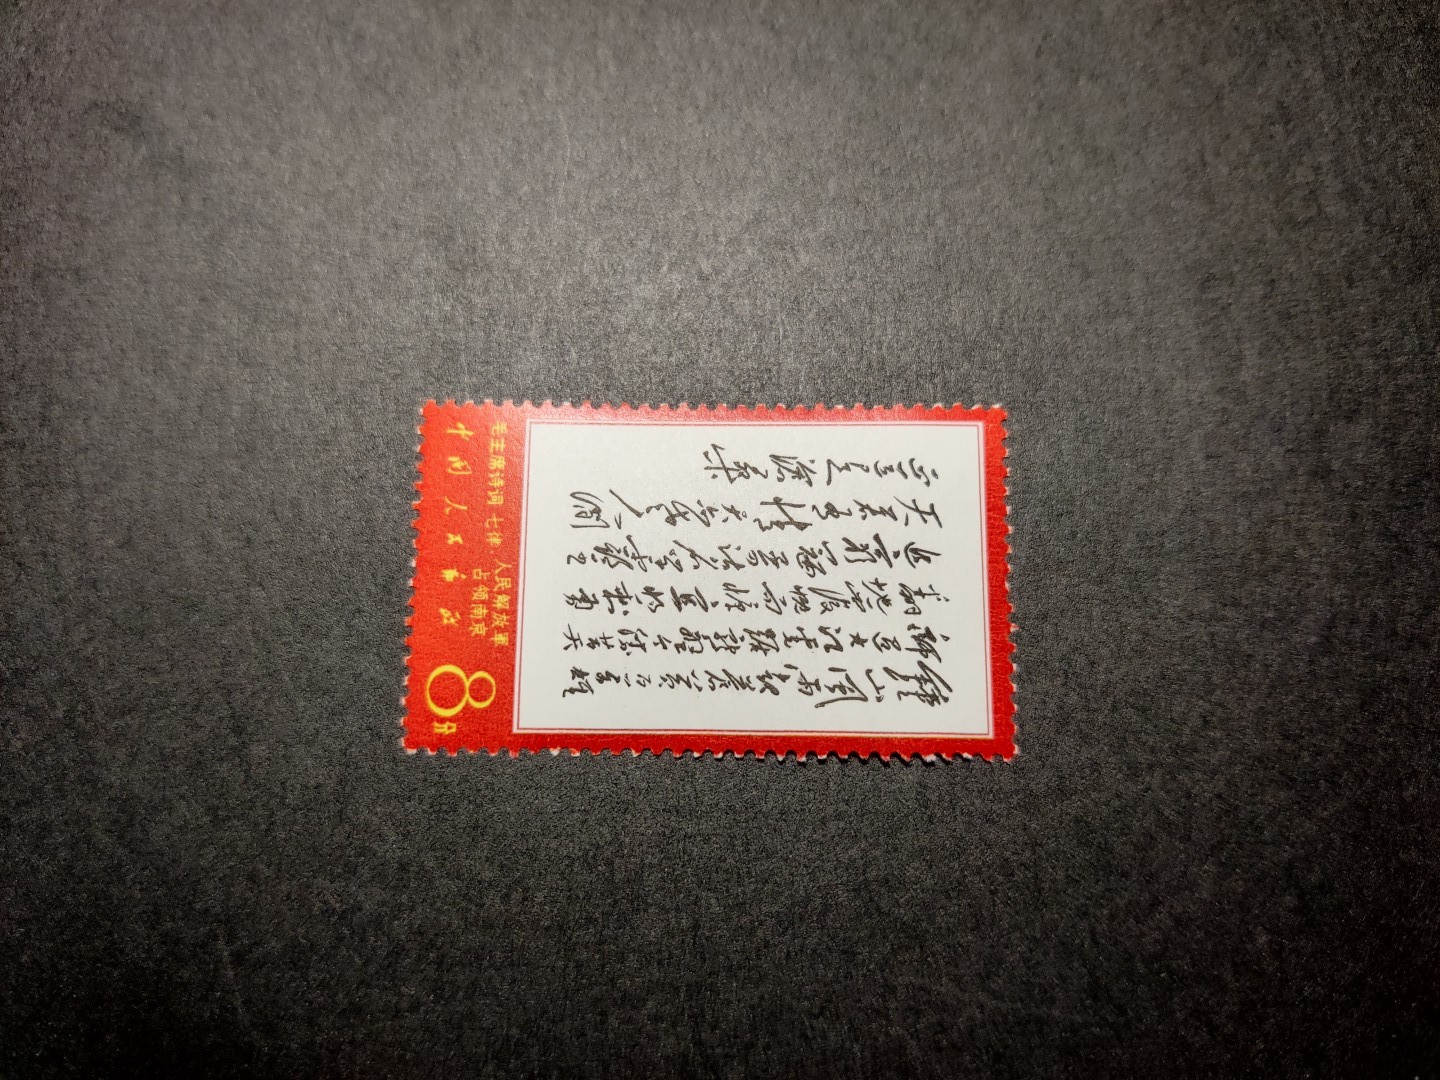 鍾山風雨起蒼黃百萬雄
師過大江虎踞龍盤今勝昔天
翻地覆慨而慷宜將剩勇
追窮寇不可沽名學霸王
天若有情天亦老人間
正道是滄桑
毛主席诗词 七律 人民解放軍
占领南京
中国人民邮政
8分